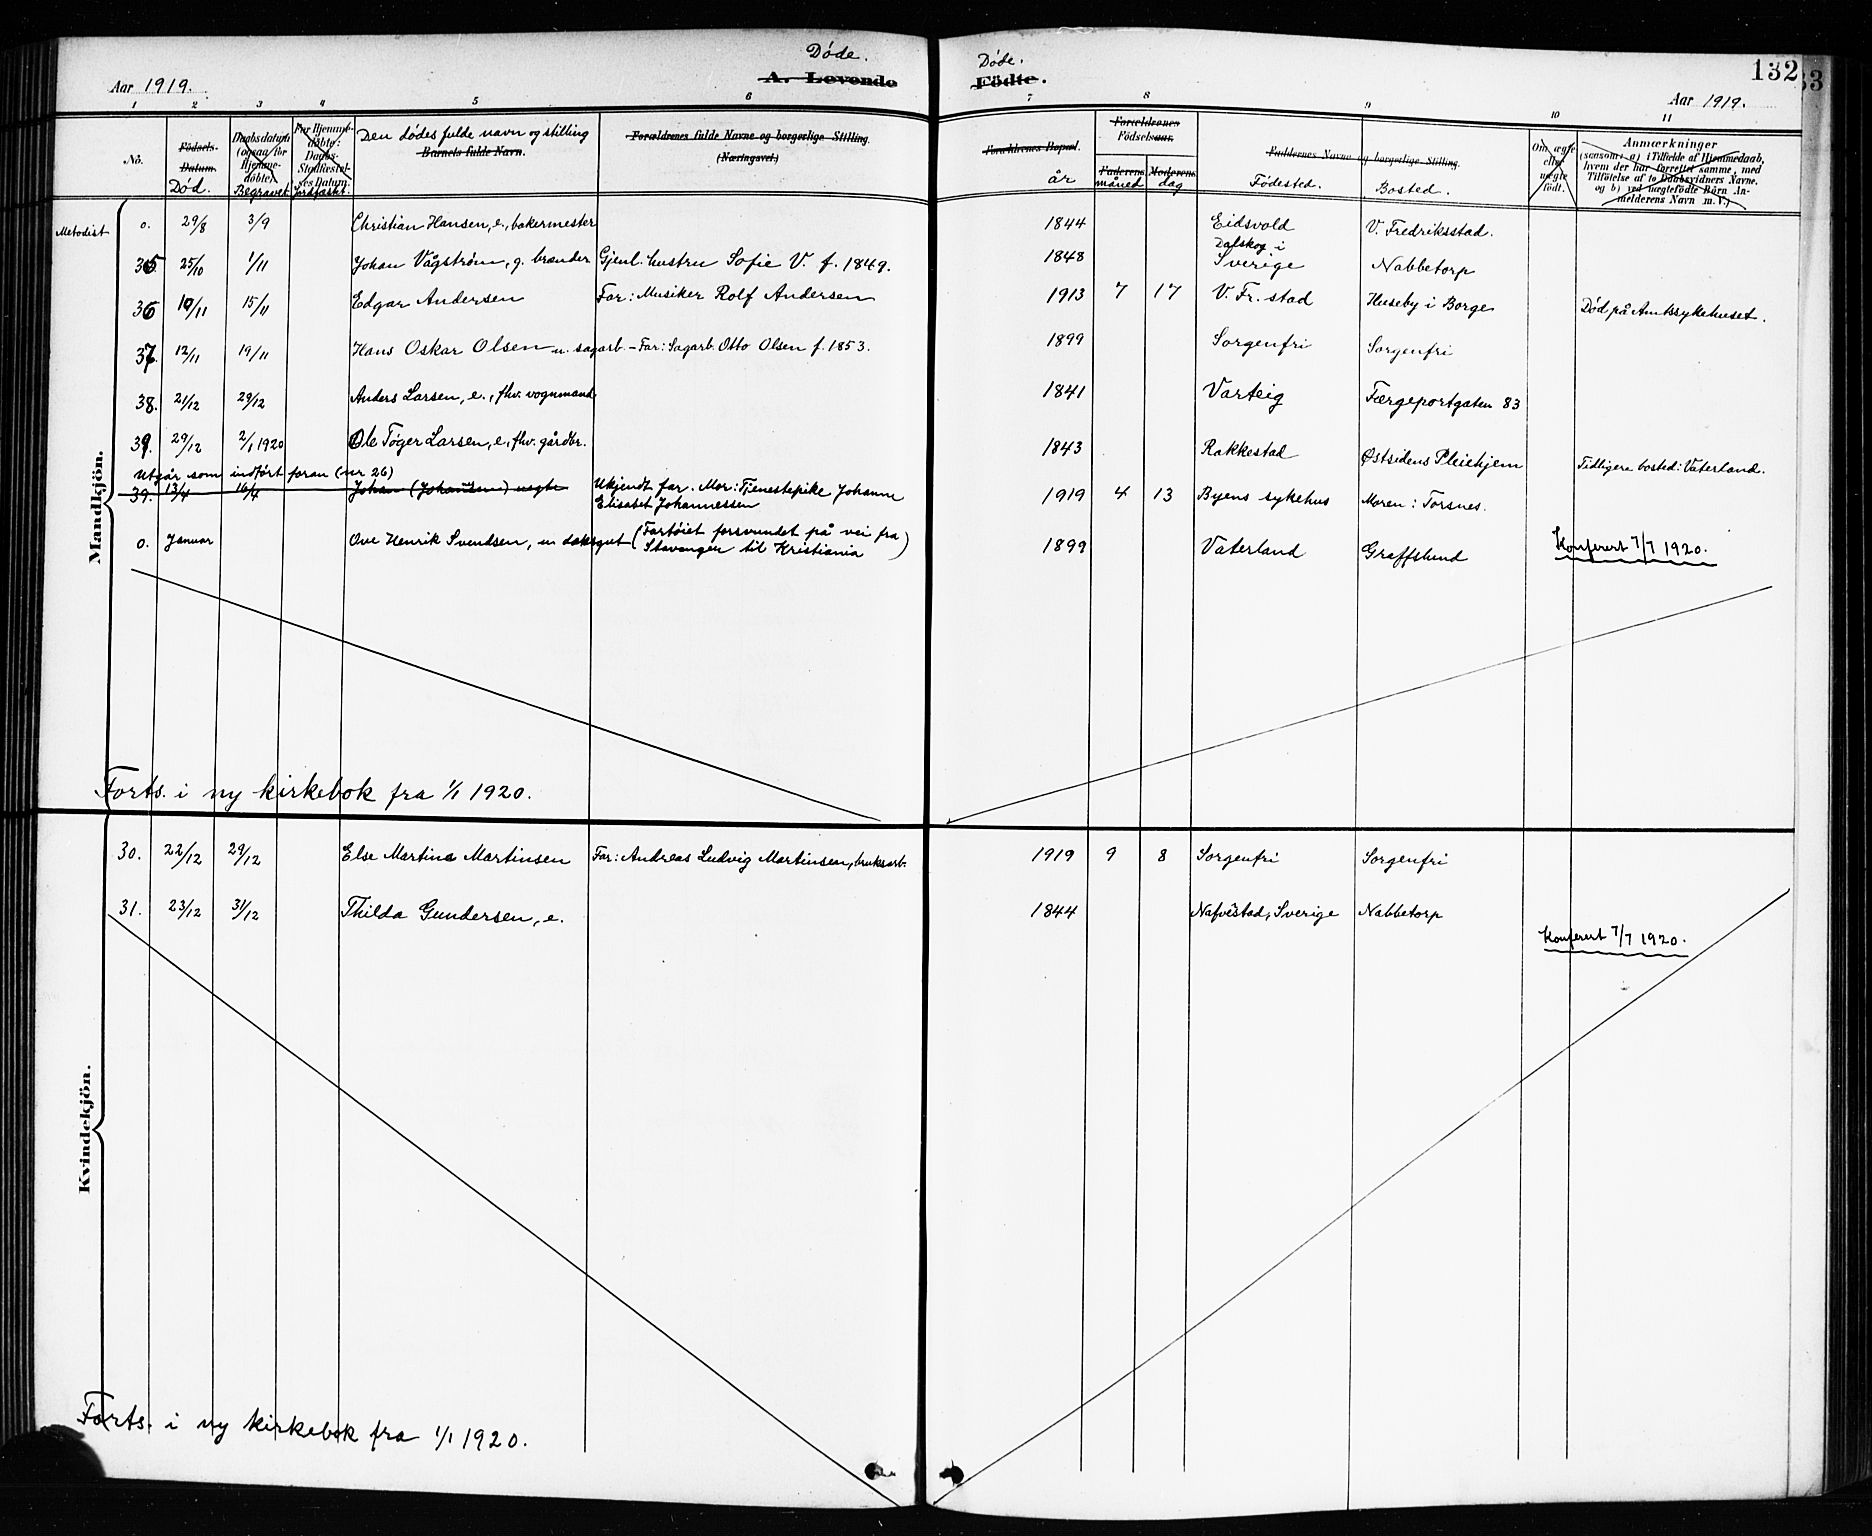 Døde. Døde. 132 33
Aar 1919. A. Levende Födte. Aar 1919.
1 2 3 4 5 6 7 8 9 10 11
No. Födsels-Datum. Død. Daabsdatum (ogsaa for Hjemmedöbte). Begravet For Hjemmedöbte: Daabs-Stadfæstelses Datum. Jordfæstet. Den dødes fulde navn og stilling Barnets fulde Navn. Forældrenes fulde Navne og borgerlige Stilling (Næringsvei.) Forældrenes Bopæl. år Forældrenes Födselsaar. Faderens måned Moderens dag Faddernes Navne og borgerlige Stilling. Fødested. Bosted. Om ægte eller uægte födt. Anmærkninger (saasom: a) i Tilfælde af Hjemmedaab, hvem der har forrettet samme, med Tilföielse af to Daabsvidners Navne, og b) ved uægtefödte Börn Anmelderens Navn m. V.)
Mandkjön.
Metodist 0. 29/8 3/9 Christian Hansen, e., bakermester 1844 Eidsvold V. Fredriksstad.
35 25/10 1/11 Johan Vågström, g. brænder Gjenl. hustru Sofie V. f. 1849. 1848 Dalskog i Sverige Nabbetorp
36 10/11 15/11 Edgar Andersen Far: Musiker Rolf Andersen 1913 7 17 V. Fr. stad Huseby i Borge Død på Amtssykehuset.
37. 12/11 19/11 Hans Oskar Olsen u. sagarb. - Far: Sagarb. Otto Olsen f. 1853. 1899 Sorgenfri Sorgenfri
38. 21/12 29/12 Anders Larsen, e., fhv. vognmand 1841 Varteig Færgeportgaten 83
39. 29/12 2/1 1920 Ole Tøger Larsen, e., fhv. gårdbr. 1843 Rakkestad Østsidens Pleiehjem Tidligere bosted: Vaterland.
Utgår som indført foran (nr 26)
39. 13/4 16/4 Johan (Johansen) uegte Ukjendt far. Mor: Tjenestepike Johanne Elisabet Johannessen 1919 4 13 Byens sykehus Moren: Torsnes.
0. Januar Ove Henrik Svendsen, u. dæksgut (Fartøiet forsvundet på vei fra Stavanger til Kristiania) 1899 Vaterland Graffslund Konferert 7/7 1920.
Forts. i ny kirkebok fra 1/1 1920.
Kvindekjön.
30. 22/12 29/12 Else Martine Martinsen Far: Andreas Ludvig Martinsen, bruksarb. 1919 9 8 Sorgenfri Sorgenfri
31. 23/12 31/12 Thilda Gundersen, e. 1844 Nafvestad, Sverige Nabbetorp
Konferert 7/7 1920.
Forts. i ny kirkebok fra 1/1 1920.